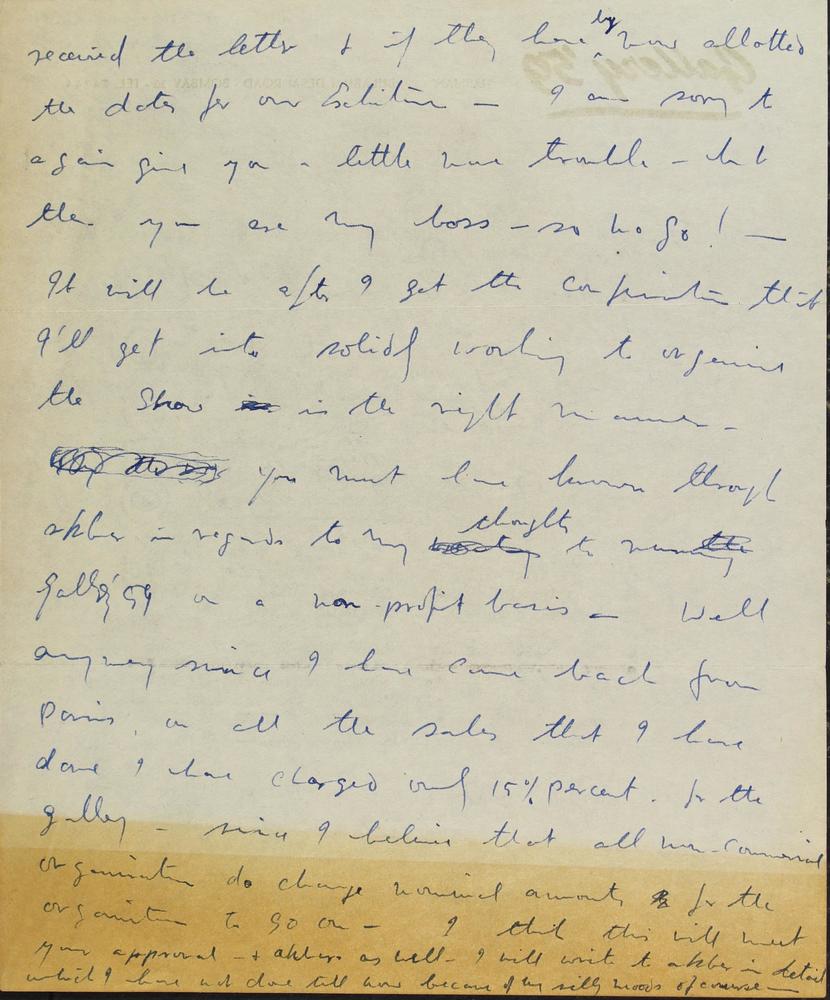 received the letter & if they have by now allotted
the dates for our Exhibition — I am sorry to
again give you a little more trouble — but
then you are my boss — so ho go! —
It will be after I get the confirmation that
I'll get into solidly working to organise
the Show in the right manner —
you must have known through
akbar in regards to my thoughts to running
Gallery 59 on a non-profit basis — Well
anyway since I have come back from
Paris, on all the sales that I have
done I have charged only 15% percent. for the
gallery — since I believe that all non-commercial
organisation do charge nominal amounts for the
organisation to go on — I think this will meet
your approval — & akbars as well — I will write to akbar in detail
which I have not done till now because of my silly moods of course —